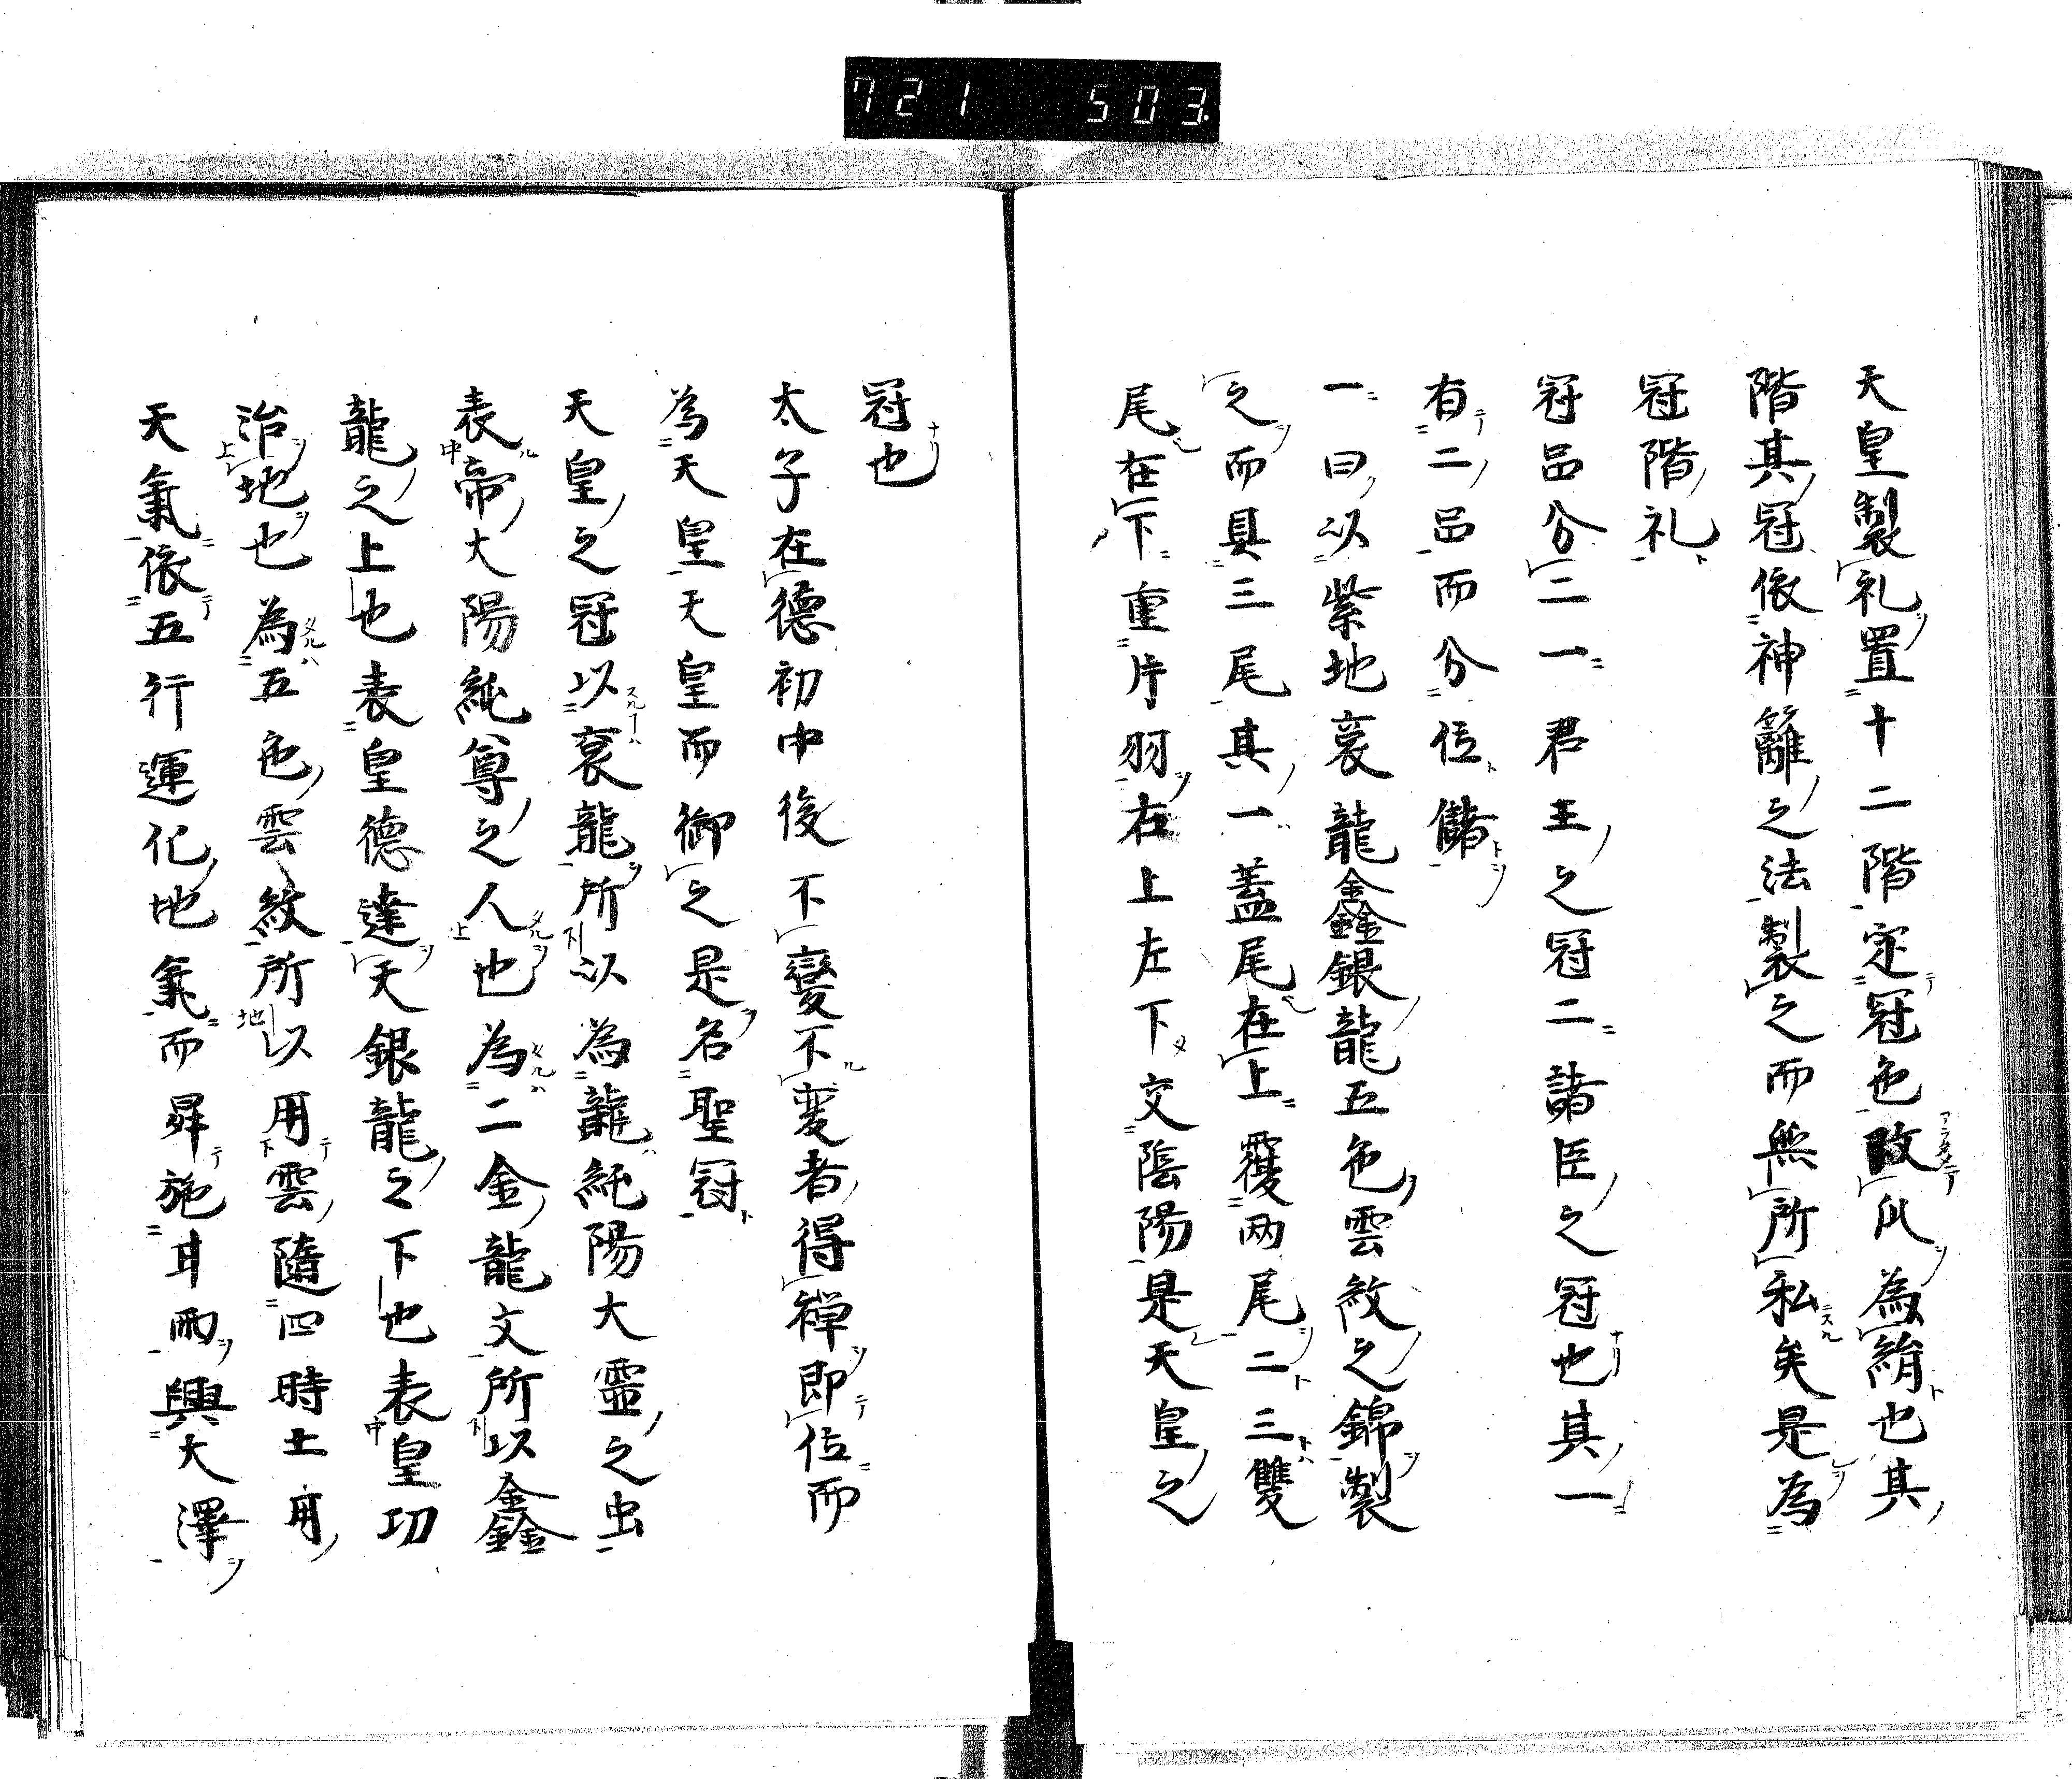 721 503.
天皇製礼置十二階定冠色改瓜為絹也其
階其冠依神籬之法製之而無所私矣是為
冠階礼
冠品分二一君王之冠二諸臣之冠也其一
有二品而分位儲
一曰以紫地袞龍鑫銀龍五色雲紋之錦製
之而具三尾其一蓋尾在上覆両尾二三雙
尾在下重片羽右上左下交陰陽是天皇之
冠也
太子在德初中後不變不変者得禅即位而
為天皇天皇而御之是名聖冠
天皇之冠以袞龍所以為龍純陽大霊之虫
表帝大陽純尊之人也為二金龍文所以鑫
龍之上也表皇德達天銀龍之下也表皇功
治地也為五色雲紋所以用雲隨四時土用
天氣依五行運化地氣而昇施甘雨興大澤